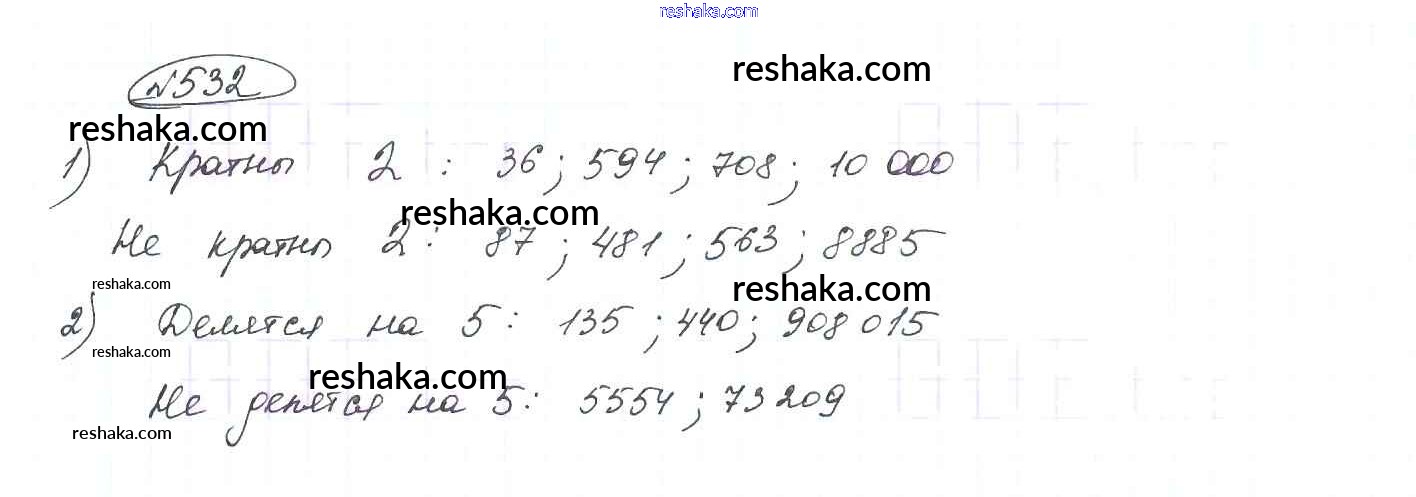 reshaka.com
№532
reshaka.com
reshaka.com
1) Кратны 2 : 36; 594; 708; 10 000
reshaka.com
Не кратны 2 : 87; 481; 563; 8885
reshaka.com
reshaka.com
2) Делятся на 5 : 135; 440; 908 015
reshaka.com
reshaka.com
Не делятся на 5 : 5554; 73 209
reshaka.com